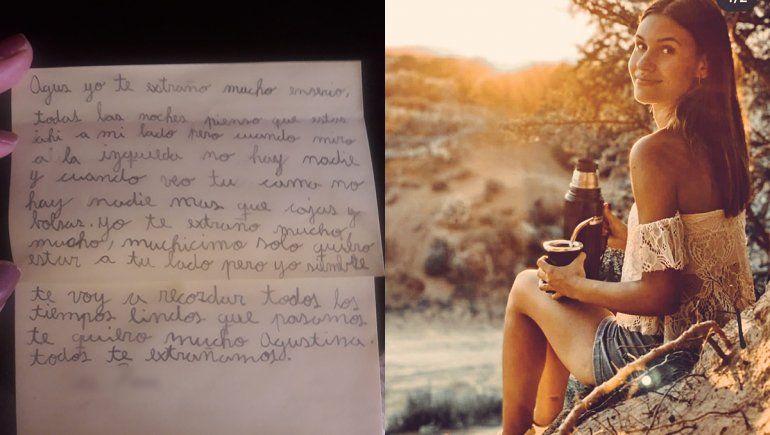 Agus yo te extraño mucho enserio,
todas las noches pienso que estas
ahi a mi lado pero cuando miro
a la izquieda no hay nadie
y cuando veo tu cama no
hay nadie mas que cajas y
bolsas. yo te extraño mucho,
mucho, muchicimo solo quiero
estar a tu lado pero yo siemble
te voy a recordar todos los
tiempos lindos que pasamos
te quiero mucho Agustina.
todos te extrañamos.